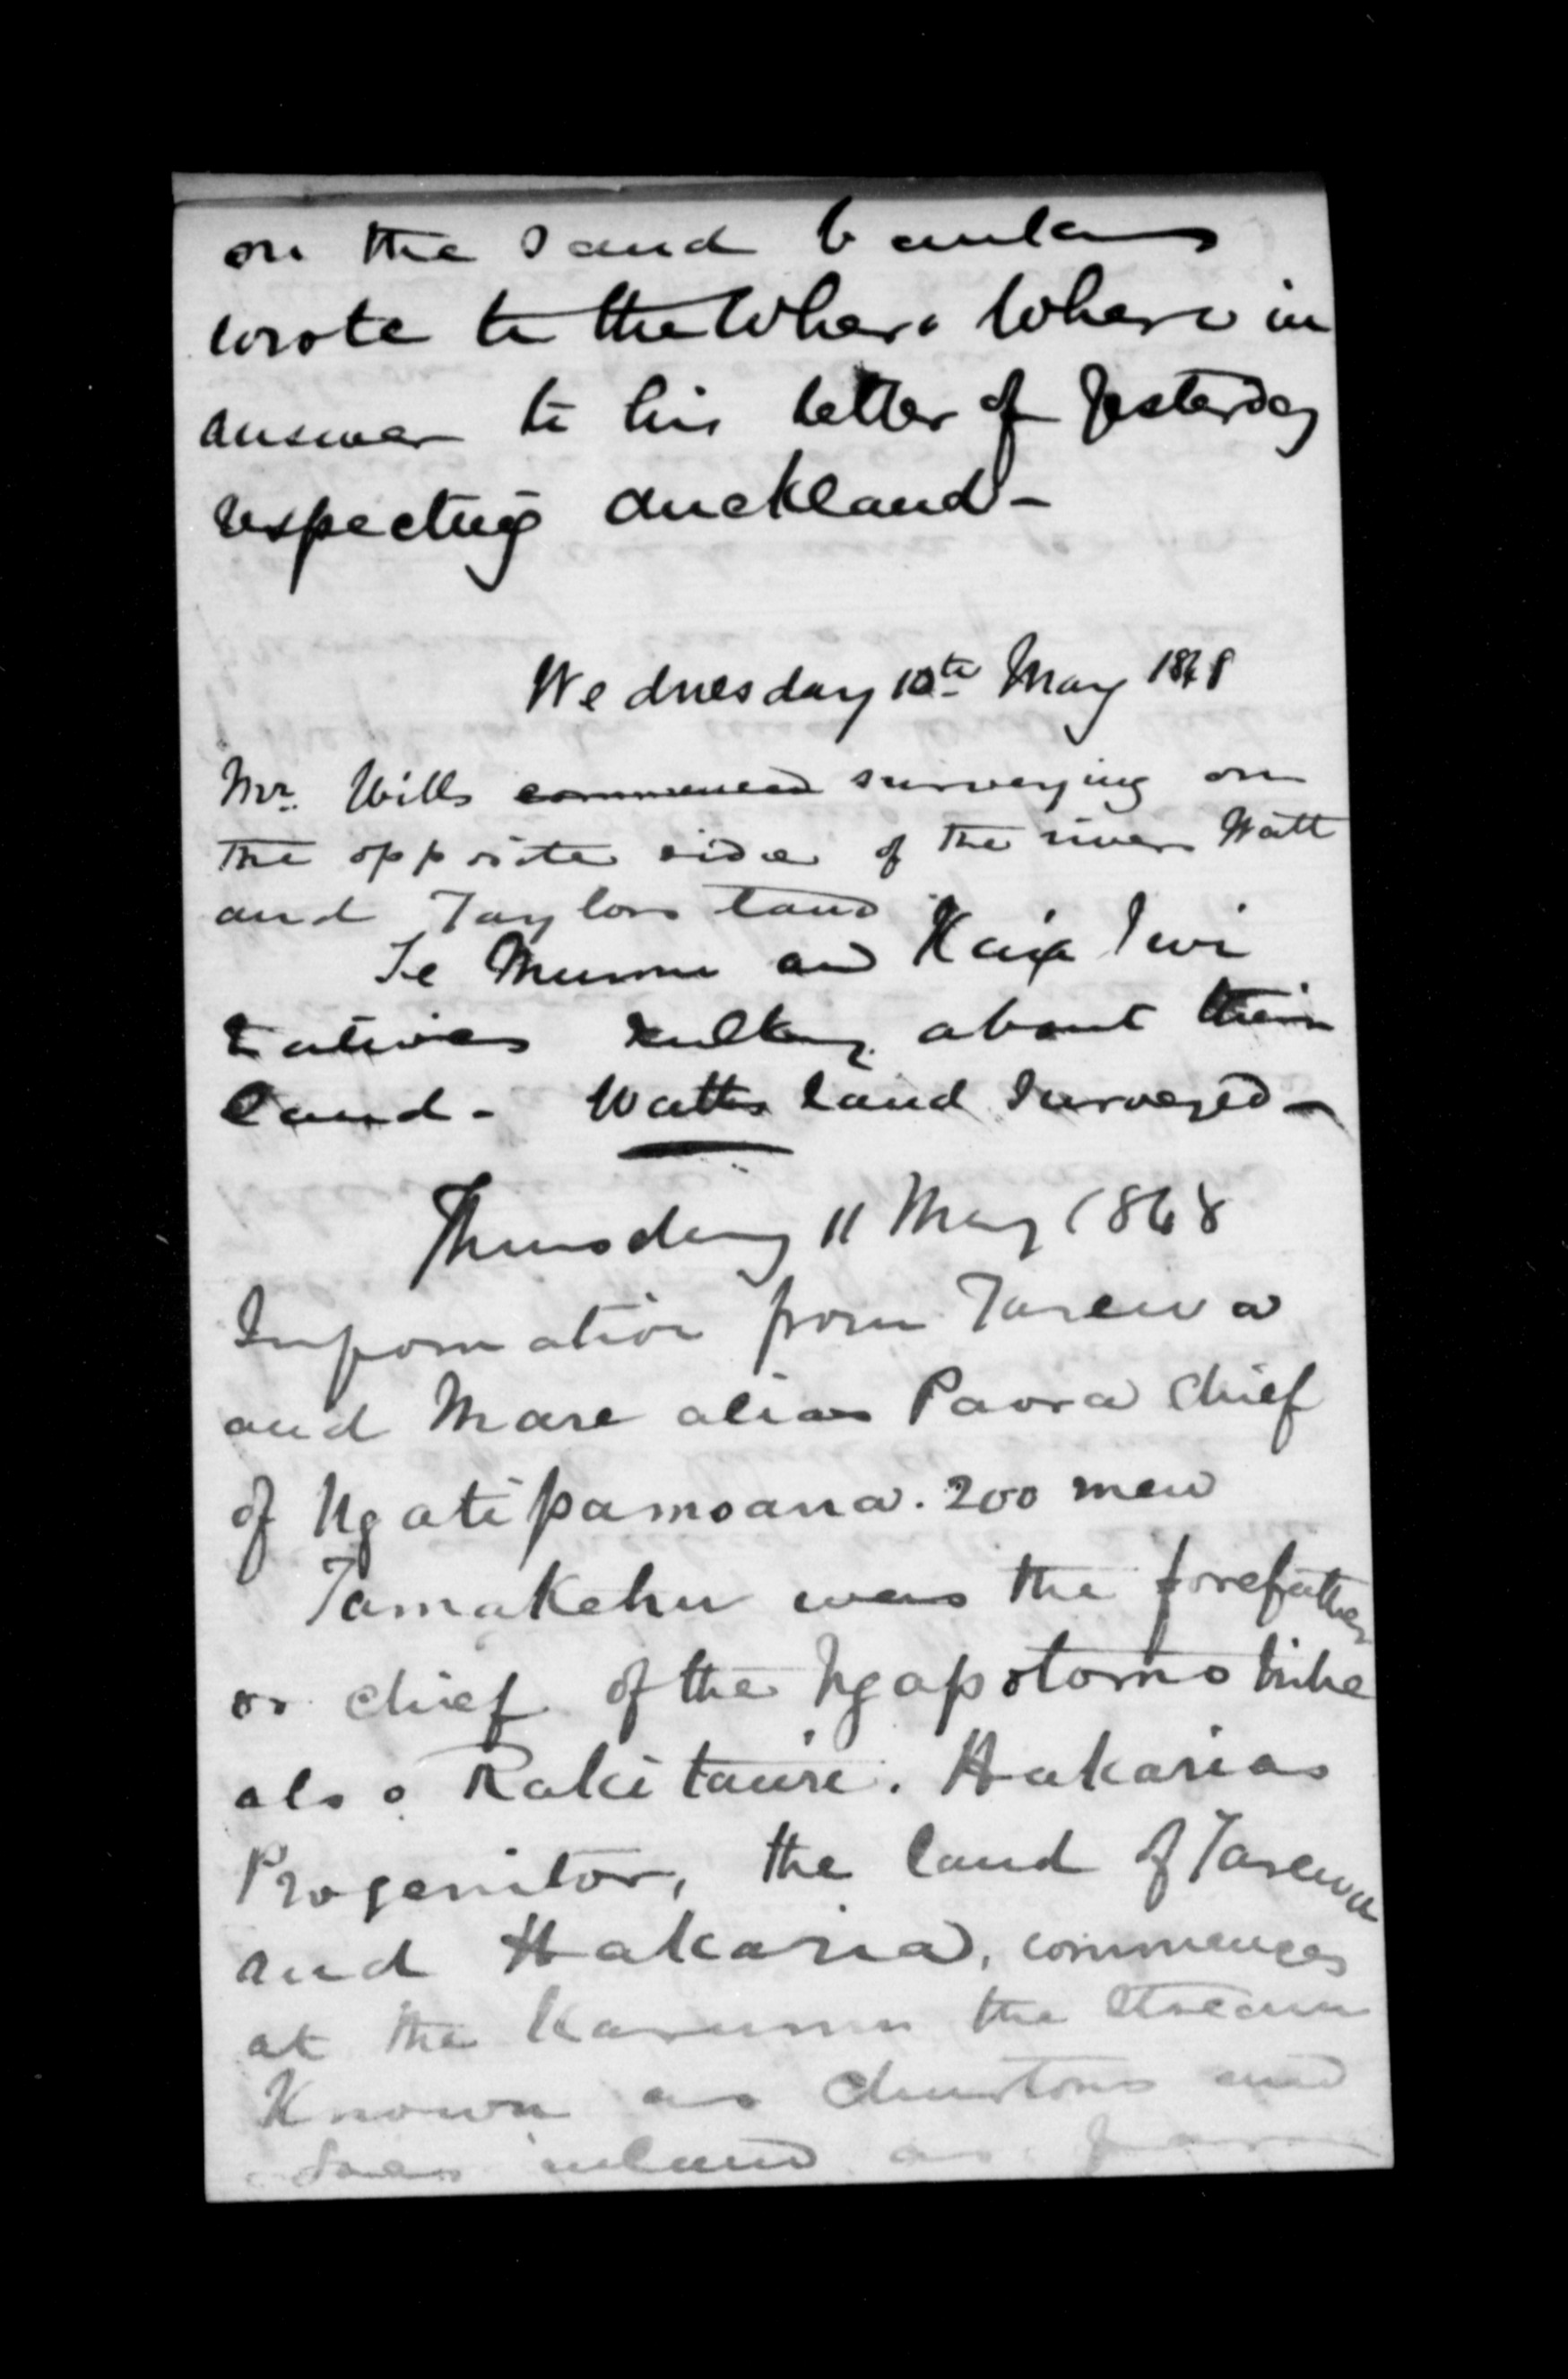 on the sand banks
wrote to the Whero Whero in
answer to his letter of yesterday
respecting Auckland -
Wednesday 10th May 1848
Mr. Wills commenced surveying on
the opposite side of the river Watt
and Taylors land
Te Mumu and Kai Iwi
natives talking about their
land - Watts land surveyed -
Thursday 11 May 1848
Information from Tarewa
and Mare alias Paora Chief
of Ngatipamoana. 200 men
Tamakehu was the forefather
or chief of the Ngapotomo tribe
also Rakitauri. Hakarias
Progenitor, the land of Tarewa
and Hakaria, commences
at the Karumu the stream
Known as Churtons and
inland as